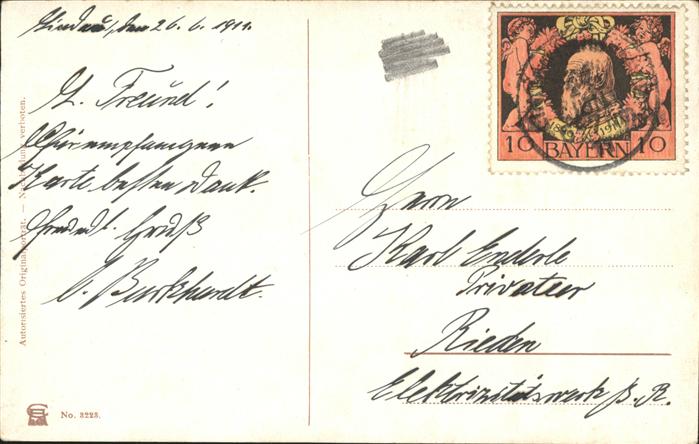 Lindau, den 26. 6. 1911.
L. Freund!
Für empfangene
Karte besten Dank.
Freundl. Gruß
C. Burkhardt.
10 BAYERN 10
Herrn
Karl Enderle
Privatier
Rieden
Elektrizitätswerk b. R.
Autorisiertes Originalporträt. — Nachbildung verboten.
No. 3223.